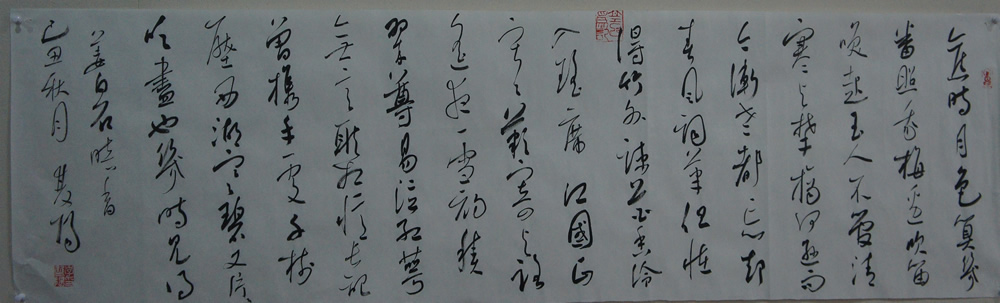 舊時月色算幾
番照我梅邊吹笛
喚起玉人不管清
寒與攀摘何遜而
今漸老都忘却
春風詞筆但怪
得竹外疎花香冷
入瑤席 江國正
寂寂歎寄與路
遥夜雪初積
翠尊易泣紅萼
無言耿相憶長記
曾攜手處千樹
壓西湖寒碧又片
吹盡也幾時見得
姜白石暗香
己丑秋月